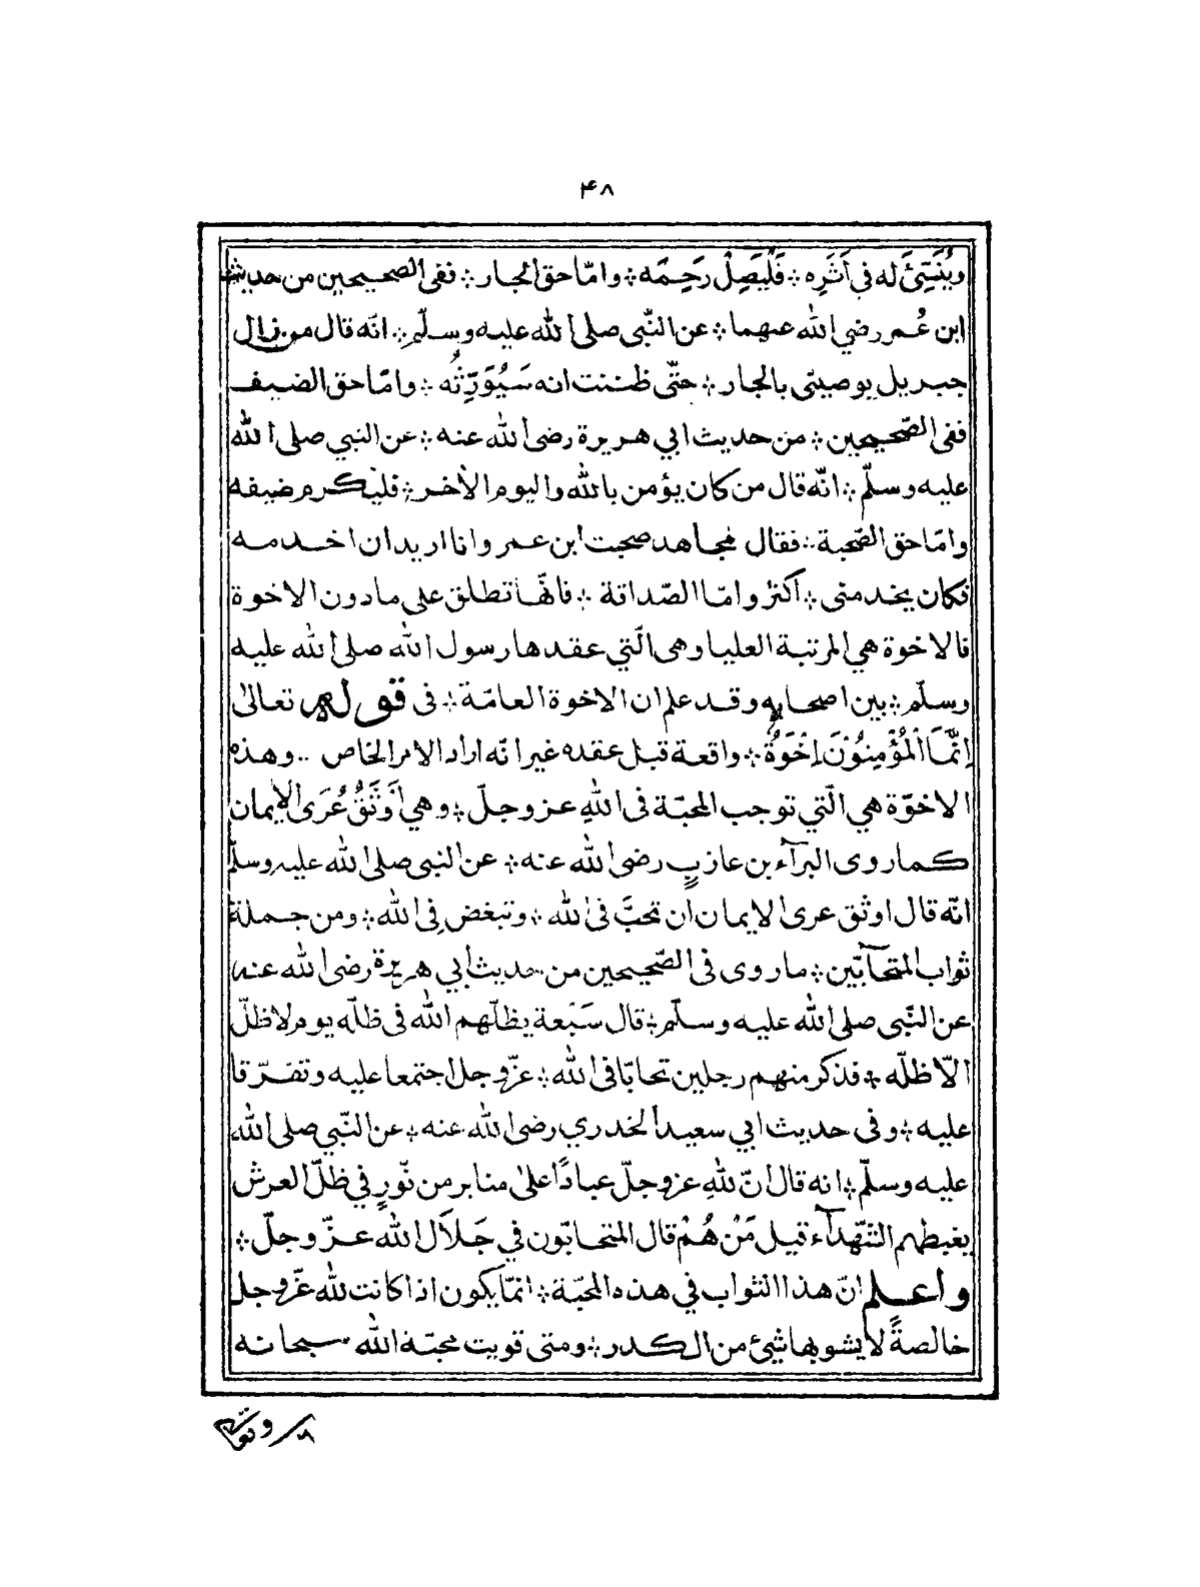 ۴۸
ويُنَسِئَ له في اَثَرِه ؞ فَلْيَصِلْ رَحِمَه ؞ وامّا حق الجار ؞ ففى الصحيحين من حديث
ابن عُمر رضي الله عنهما ؞ عن النّبى صلى الله عليه وسلّم ؞ انّه قال ما زال
جبريل يوصينى بالجار ؞ حتّى ظننت انه سَيُوَرِّثُه ؞ وامّا حق الضيف
ففى الصّحيحين ؞ من حديث ابي هريرة رضى الله عنه ؞ عن النبي صلى الله
عليه وسلّم ؞ انّه قال من كان يؤمن بالله واليوم الأخر ؞ فليكرم ضيفه
وامّا حق الصّحبة ؞ فقال مجاهد صحبت ابن عمر وانا اريد ان اخدمه
فكان يخدمنى ؞ اكثر وامّا الصّداقة ؞ فانّها تطلق على مادون الاخوة
فالاخوة هي المرتبة العليا وهى الّتي عقدها رسول الله صلى الله عليه
وسلّم ؞ بين اصحابه وقد علم ان الاخوة العامّة ؞ فى قوله تعالىٰ
اِنَّمَا الْمُؤْمِنُوْنَ اِخْوَةٌ ؞ واقعة قبل عقده غير انّه اراد الامر الخاص ؞ وهذه
الاخوّة هي الّتي توجب المحبّة فى اللهِ عزوجلّ ؞ وهي اَوْثَقُ عُرَى الإيمان
كما روى البرآء بن عازبٍ رضى الله عنه ؞ عن النبى صلى الله عليه وسلّم
انّه قال اوثق عرى الايمان ان تحبَّ فى الله ؞ وتبغض فِى الله ؞ ومن جملة
ثواب المتحآبّين ؞ ما روى فى الصّحيحين من حديث ابي هريرة رضى الله عنه
عن النّبى صلى الله عليه وسلّم ؞ قال سَبْعة يظلّهم الله فى ظلّه يوم لا ظلّ
الّا ظلّه ؞ فذكر منهم رجلين تحابّا فى الله ؞ عزّوجل اجتمعا عليه وتفرّقا
عليه ؞ وفى حديث ابي سعيد الخدري رضى الله عنه ؞ عن النّبي صلى الله
عليه وسلّم ؞ انه قال انّ للهِ عزوجلّ عبادًا على منابر من نّورٍ في ظلّ العرش
يغبطهم الشّهدآء قيل مَنْ هُمْ قال المتحابّون في جَلاَل الله عزّوجلّ ؞
واعلم انّ هذا الثواب في هذه المحبّة ؞ انمّا يكون اذا كانت لله عزّوجل
خالصةً لا يشوبها شيئ من الكدر ؞ ومتى قويت محبّة الله سبحانه